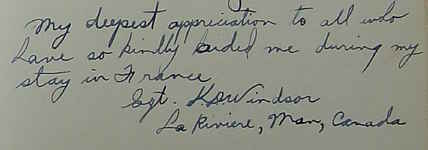 My deepest appreciation to all who
have so kindly aided me during my
stay in France
Sgt. K D Windsor
La Riviere, Man, Canada